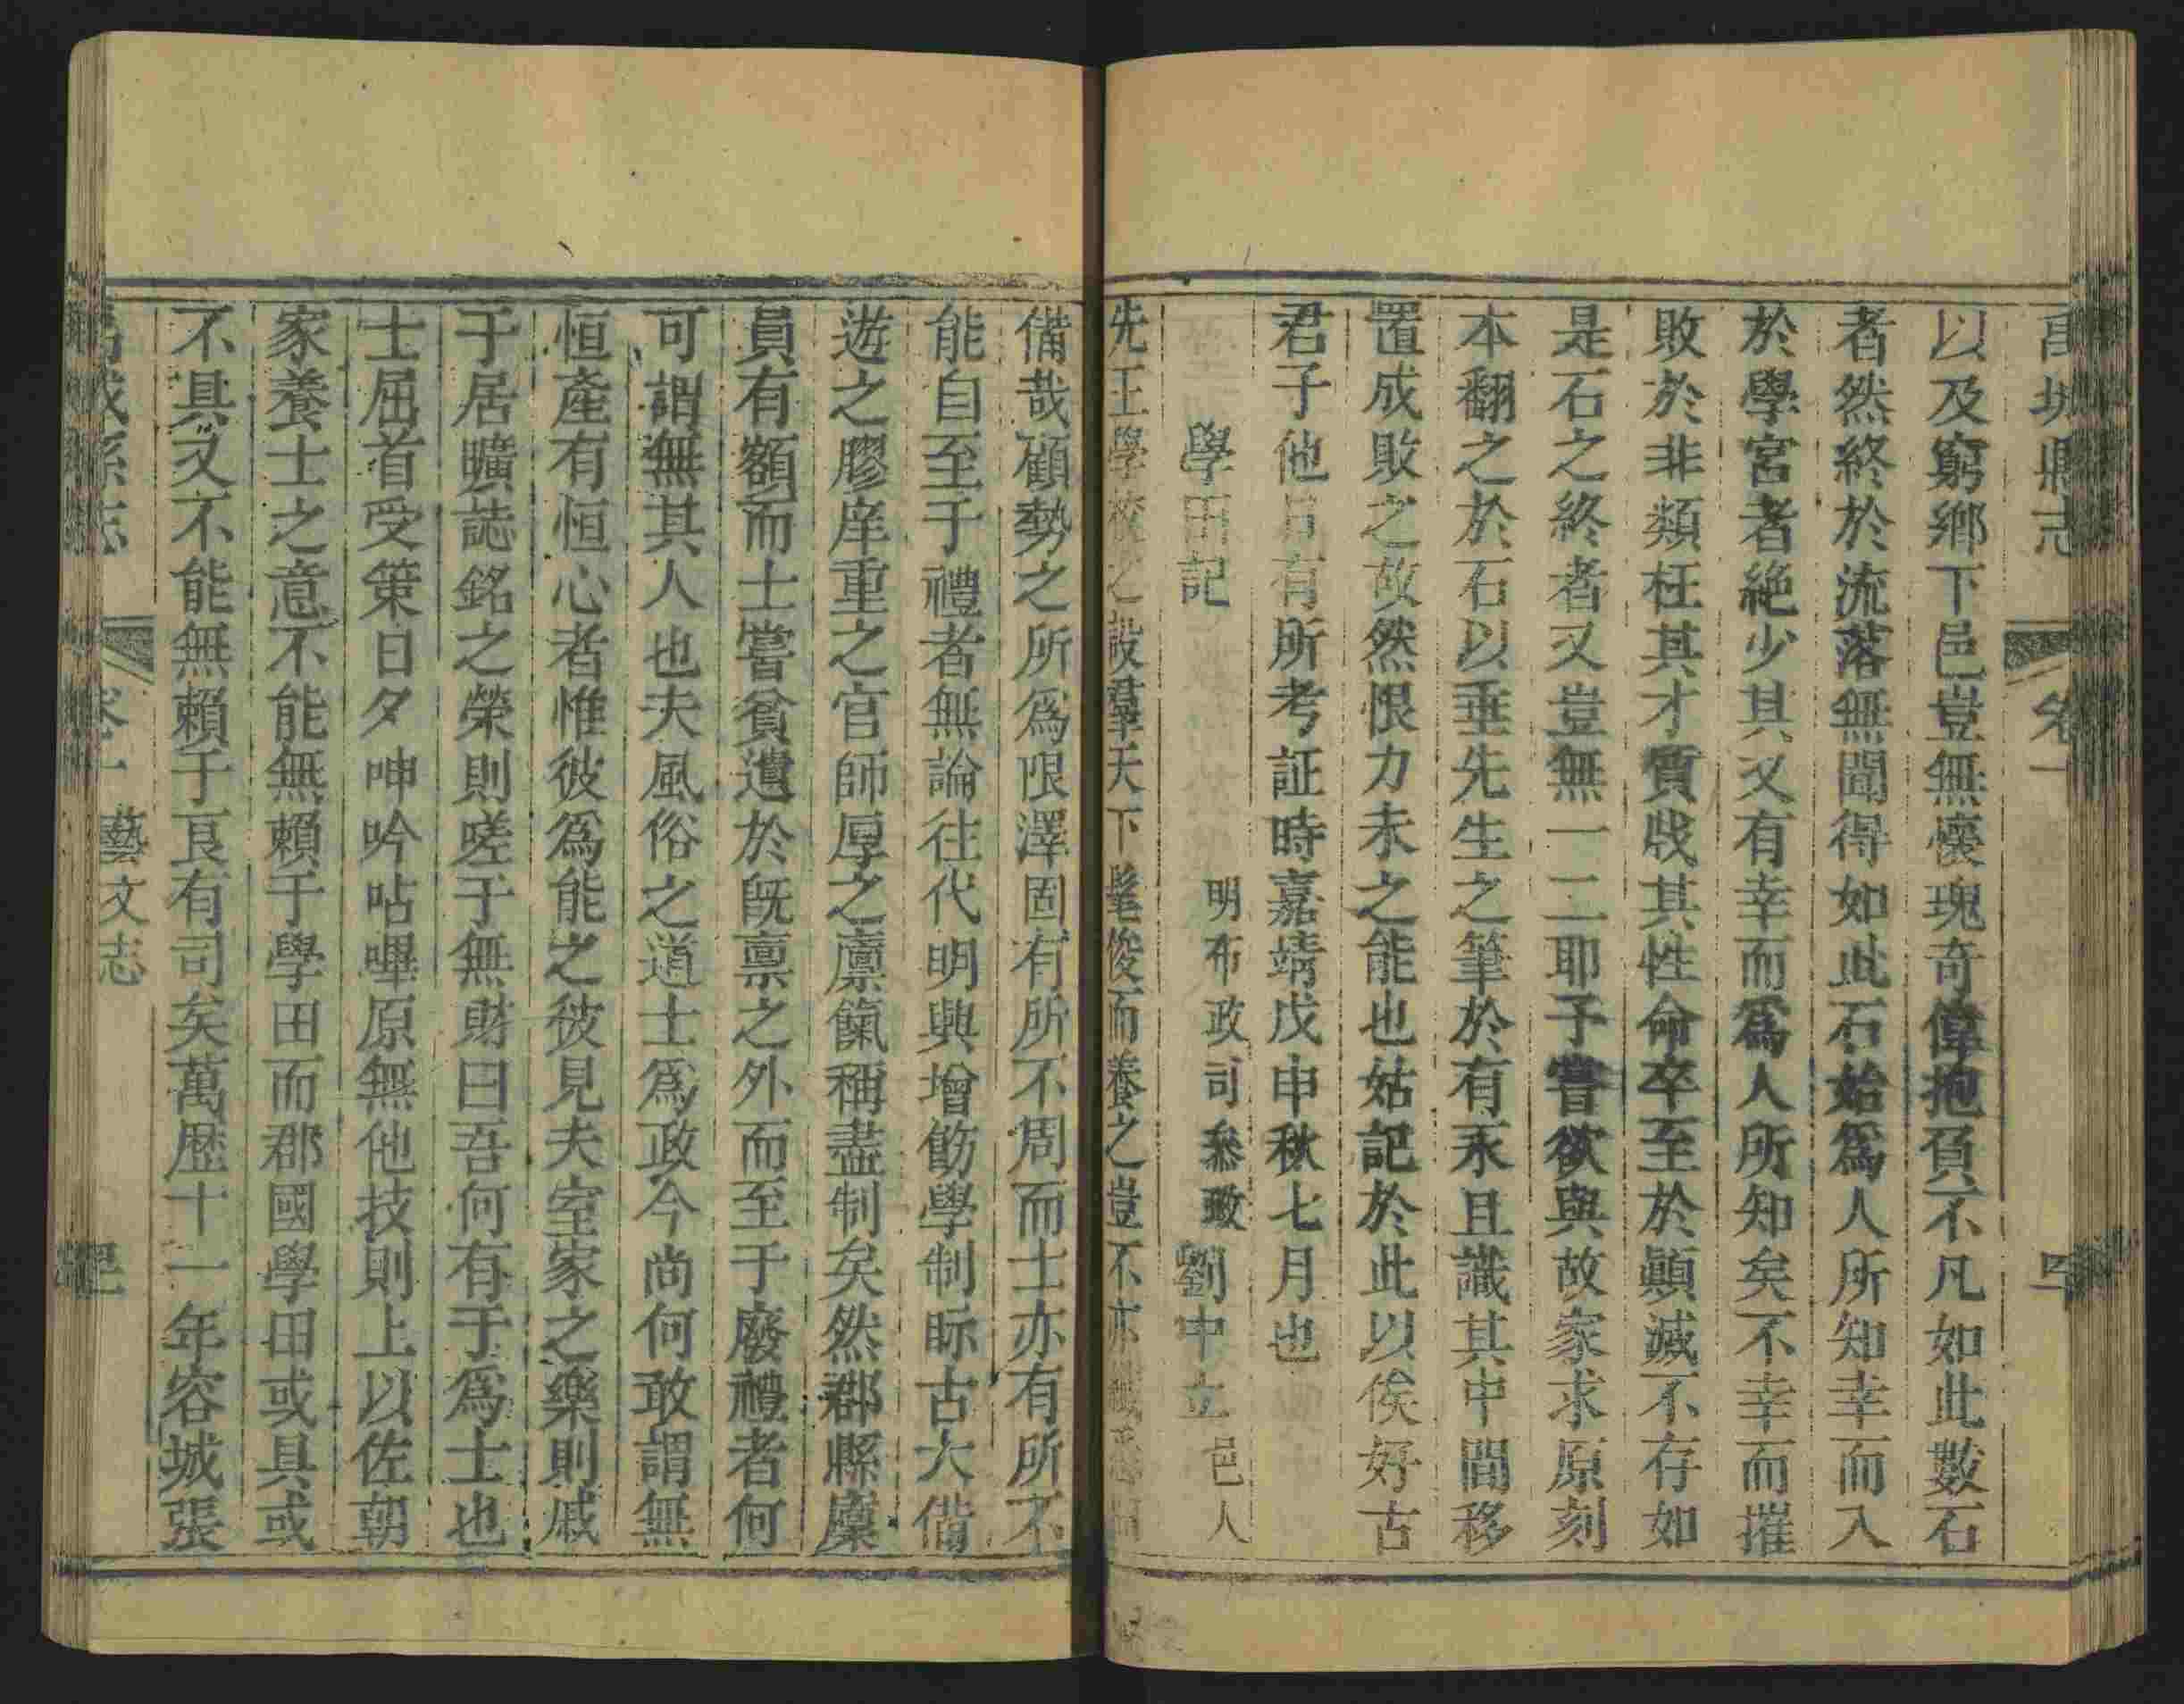 縣志 卷一
以及窮鄉下邑豈無懷瑰奇偉抱負不凡如此數石
者然終於流落無聞得如此石始爲人所知幸而入
於學宮者絶少其又有幸而爲人所知矣不幸而摧
敗於非類枉其才質戕其性命卒至於顚滅不存如
是石之終者又豈無一二耶予嘗欲與故家求原刻
本翻之於石以垂先生之筆於有永且識其中間移
置成敗之故然恨力未之能也姑記於此以俟好古
君子他日有所考証時嘉靖戊申秋七月也
學田記
明布政司叅政劉中立邑人
先王學校之設羣天下髦俊而養之豈不亦
備哉顧勢之所爲限澤固有所不周而士亦有所不
能自至于禮者無論往代明興增飭學制眎古大備
遊之膠庠重之官師厚之廩餼稱盡制矣然郡縣廩
員有額而士嘗貧遺於旣禀之外而至于廢禮者何
可謂無其人也夫風俗之道士爲政今尚何敢謂無
恒產有恒心者惟彼爲能之彼見夫室家之樂則戚
于居曠誌銘之榮則嗟于無財曰吾何有于爲士也
士屈首受策日夕呻吟呫嗶原無他技則上以佐朝
家養士之意不能無賴于學田而郡國學田或具或
不具又不能無賴于良有司矣萬歴十一年容城張
縣志 卷十 藝文志